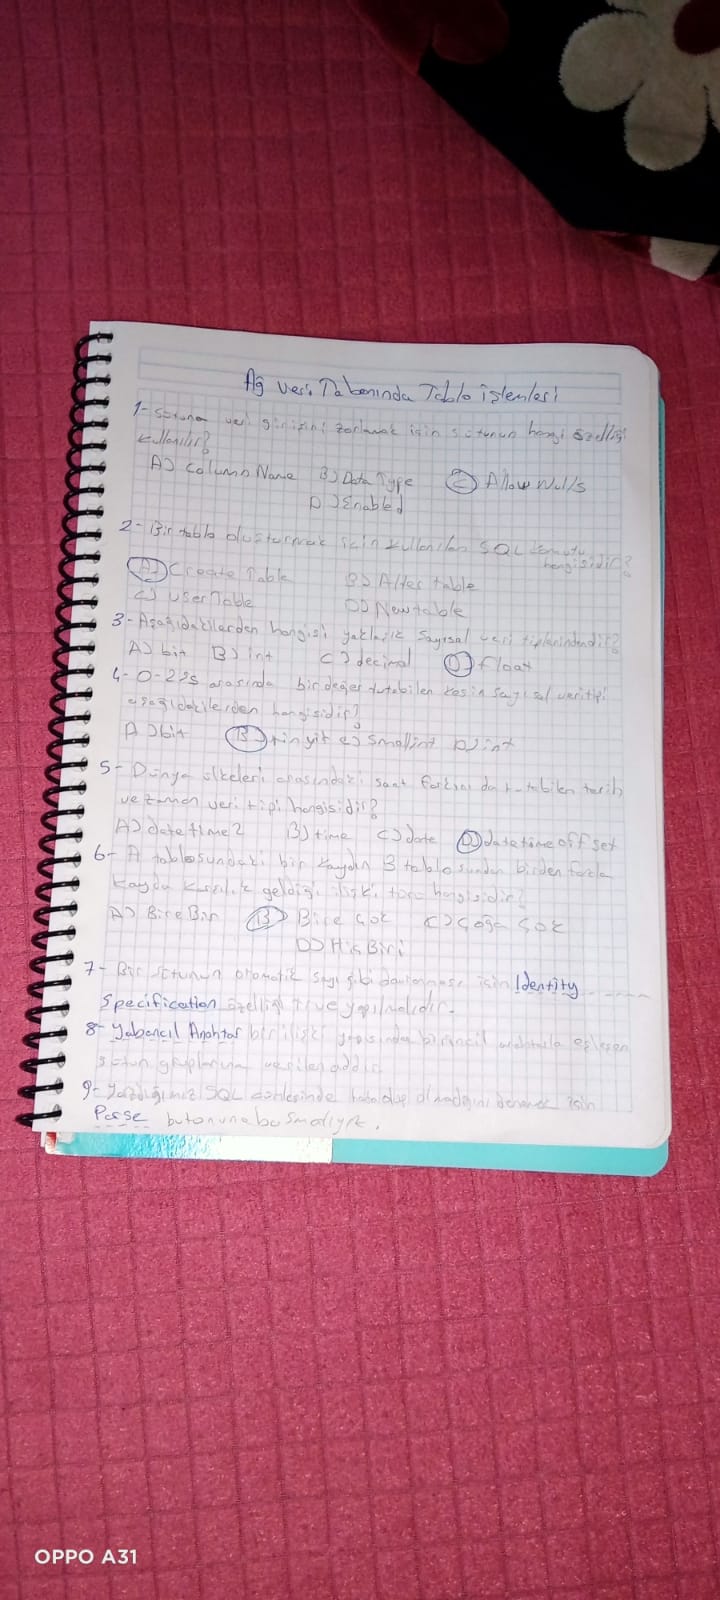 Ağ Veri Tabanında Tablo işlemleri
1- Sütuna veri girişini zorlamak için sütunun hangi özelliği
kullanılır?
A) Column Name B) Data Type C) Allow Nulls
D) Enabled
2- Bir tablo oluşturmak için kullanılan SQL komutu
hangisidir?
A) Create Table B) Alter table
C) User Table D) New table
3- Aşağıdakilerden hangisi yaklaşık sayısal veri tiplerindendir?
A) bit B) int C) decimal D) float
4- 0-255 arasında bir değer tutabilen kesin sayısal veri tipi
aşağıdakilerden hangisidir?
A) bit B) tinyit c) Smallint D) int
5- Dünya ülkeleri arasındaki saat farkını da tutabilen tarih
ve zaman veri tipi hangisidir?
A) datetime2 B) time C) date D) datetime offset
6- A tablosundaki bir kaydın B tablosundan birden fazla
kayda karşılık geldiği ilişki türü hangisidir?
A) Bire Bir B) Bire Çok C) Çoğa Çok
D) Hiç Biri
7- Bir sütunun otomatik sayı gibi davranması için Identity
Specification özelliği true yapılmalıdır.
8- Yabancıl Anahtar bir ilişki yapısında birincil anahtarla eşleşen
sütun gruplarına verilen addır.
9- Yazdığımız SQL cümlesinde hata olup olmadığını denemek için
Parse butonuna basmalıyız.
OPPO A31